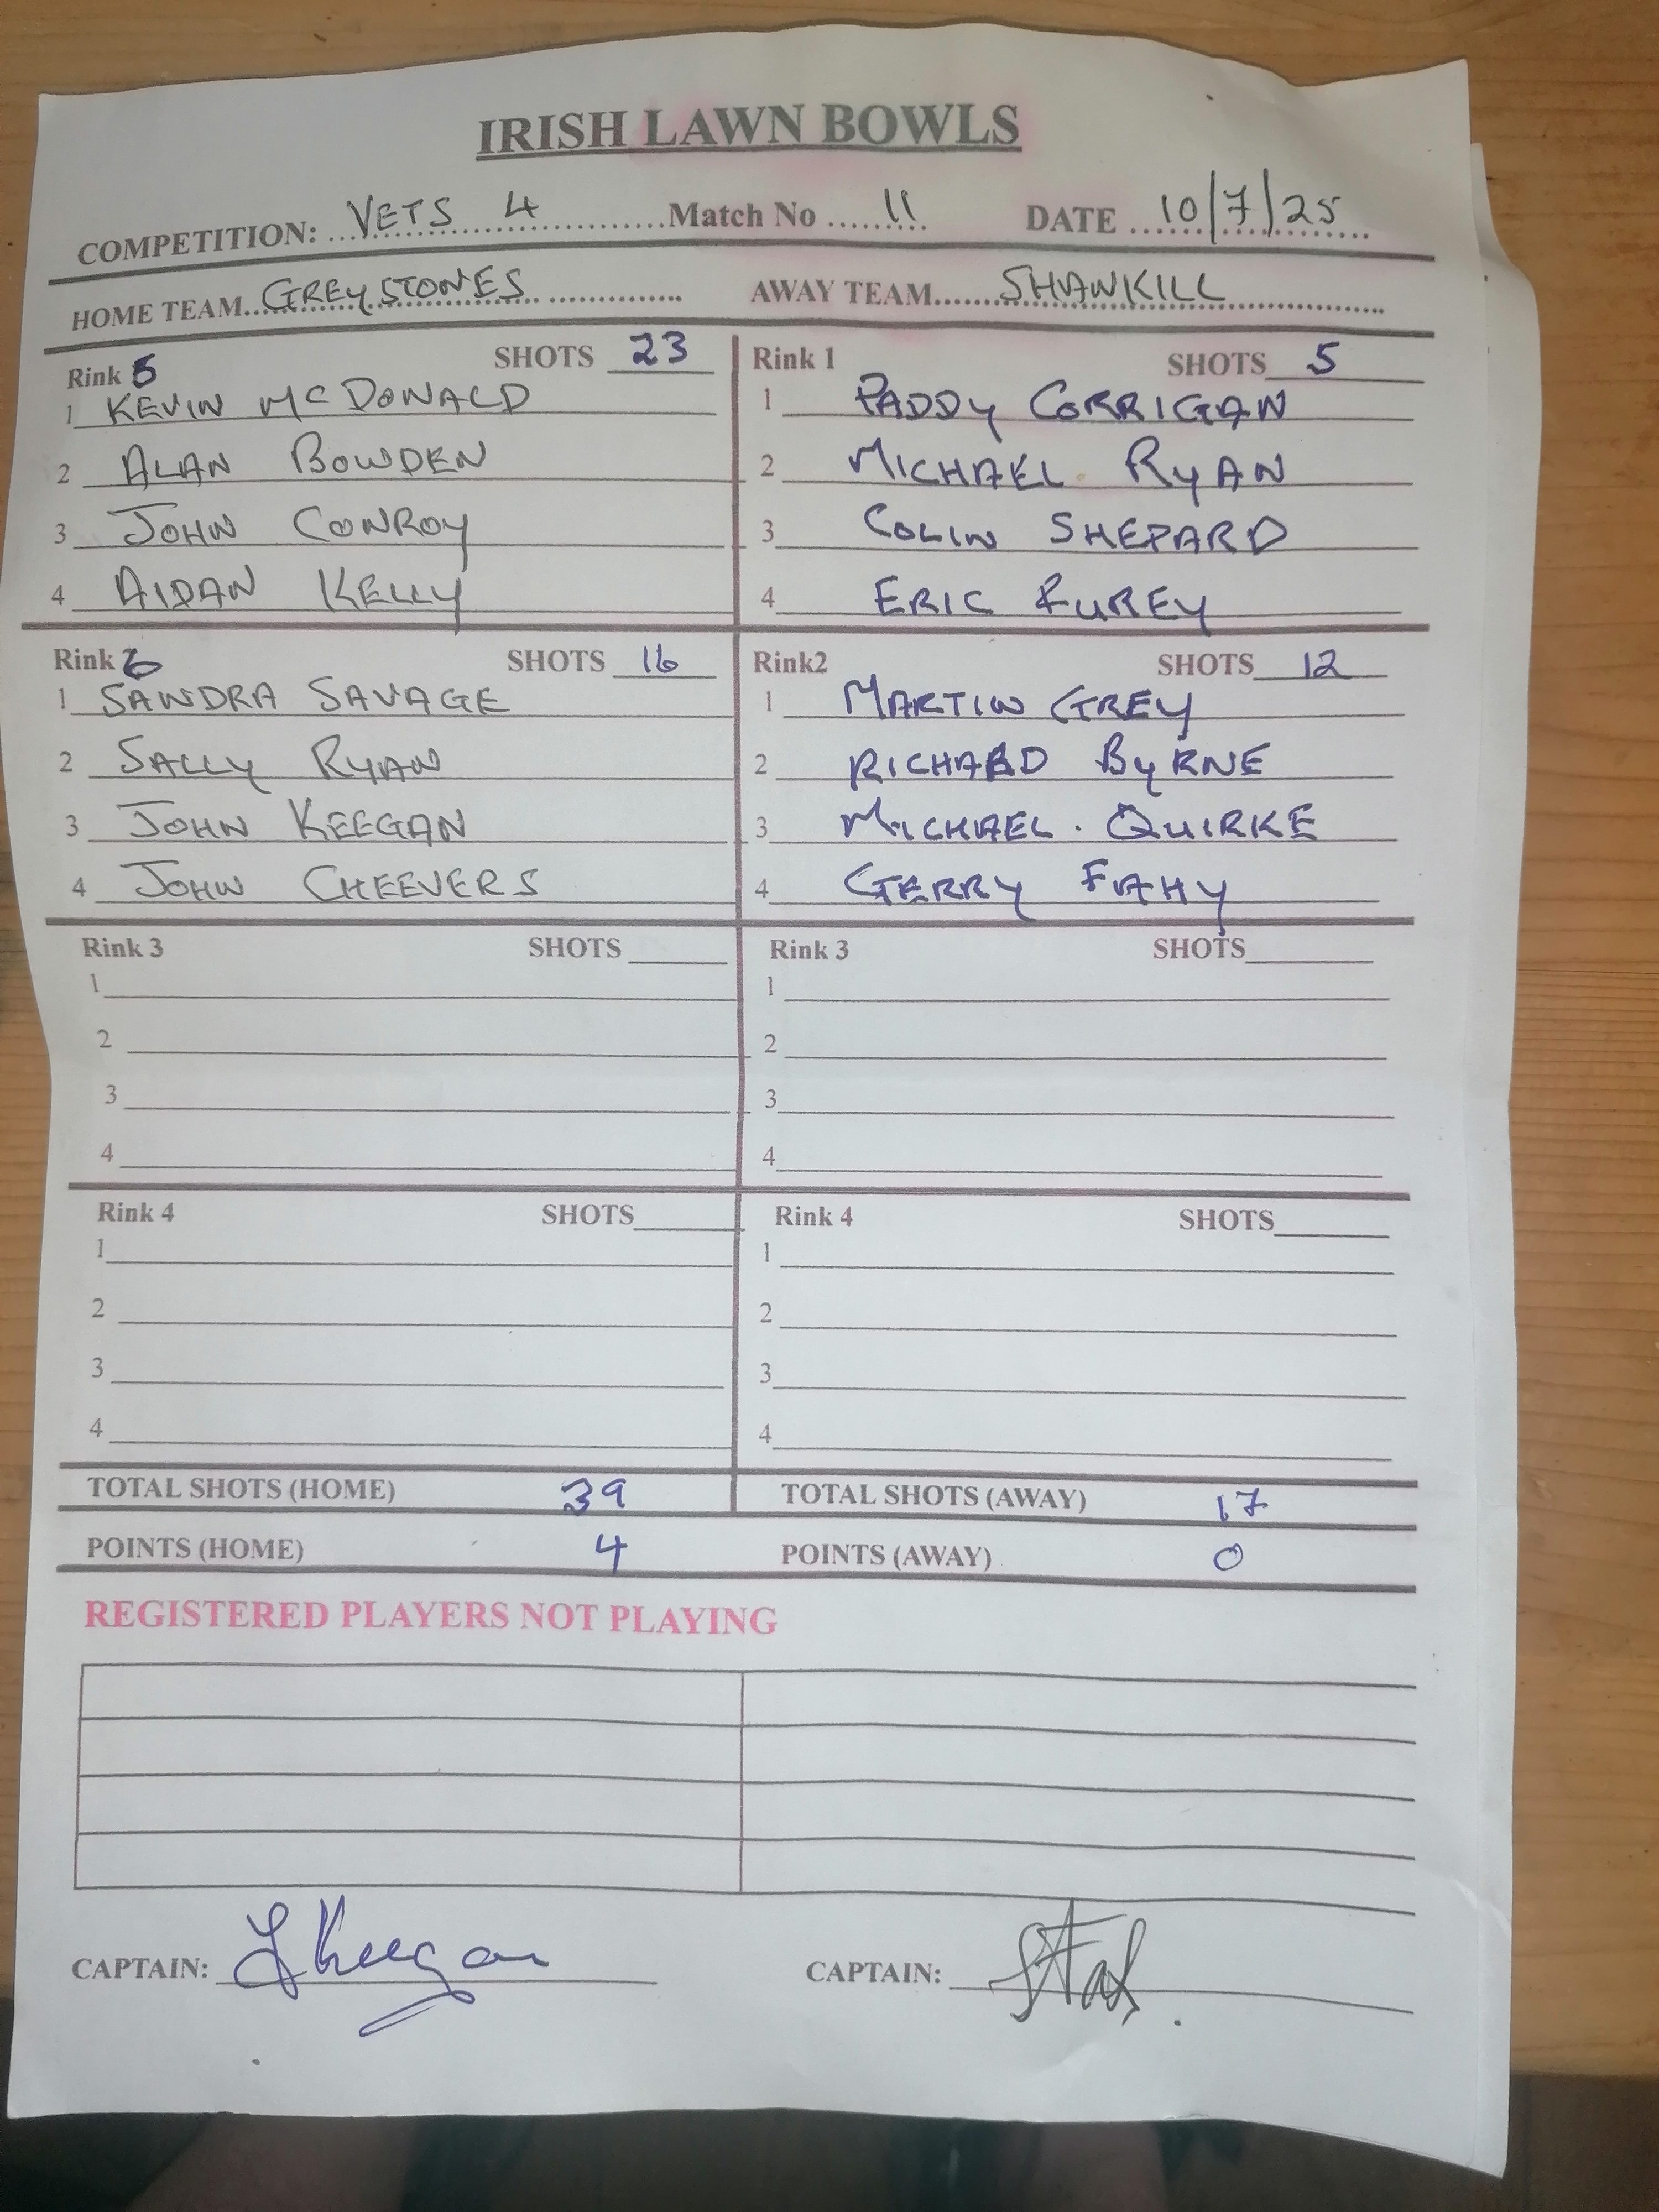 IRISH LAWN BOWLS
COMPETITION: VETS 4 Match No 11 DATE 10/7/25
HOME TEAM GREYSTONES AWAY TEAM SHANKILL
Rink 5 SHOTS 23
1 KEVIN McDONALD
2 ALAN BOWDEN
3 JOHN CONROY
4 AIDAN KELLY
Rink 1 SHOTS 5
1 PADDY CORRIGAN
2 MICHAEL RYAN
3 COLIN SHEPARD
4 ERIC FUREY
Rink 6 SHOTS 16
1 SANDRA SAVAGE
2 SALLY RYAN
3 JOHN KEEGAN
4 JOHN CHEEVERS
Rink2 SHOTS 12
1 MARTIN GREY
2 RICHARD BYRNE
3 MICHAEL. QUIRKE
4 GERRY FAHY
Rink 3 SHOTS
1
2
3
4
Rink 3 SHOTS
1
2
3
4
Rink 4 SHOTS
1
2
3
4
Rink 4 SHOTS
1
2
3
4
TOTAL SHOTS (HOME) 39 TOTAL SHOTS (AWAY) 17
POINTS (HOME) 4 POINTS (AWAY) 0
REGISTERED PLAYERS NOT PLAYING
CAPTAIN: J Keegan CAPTAIN: